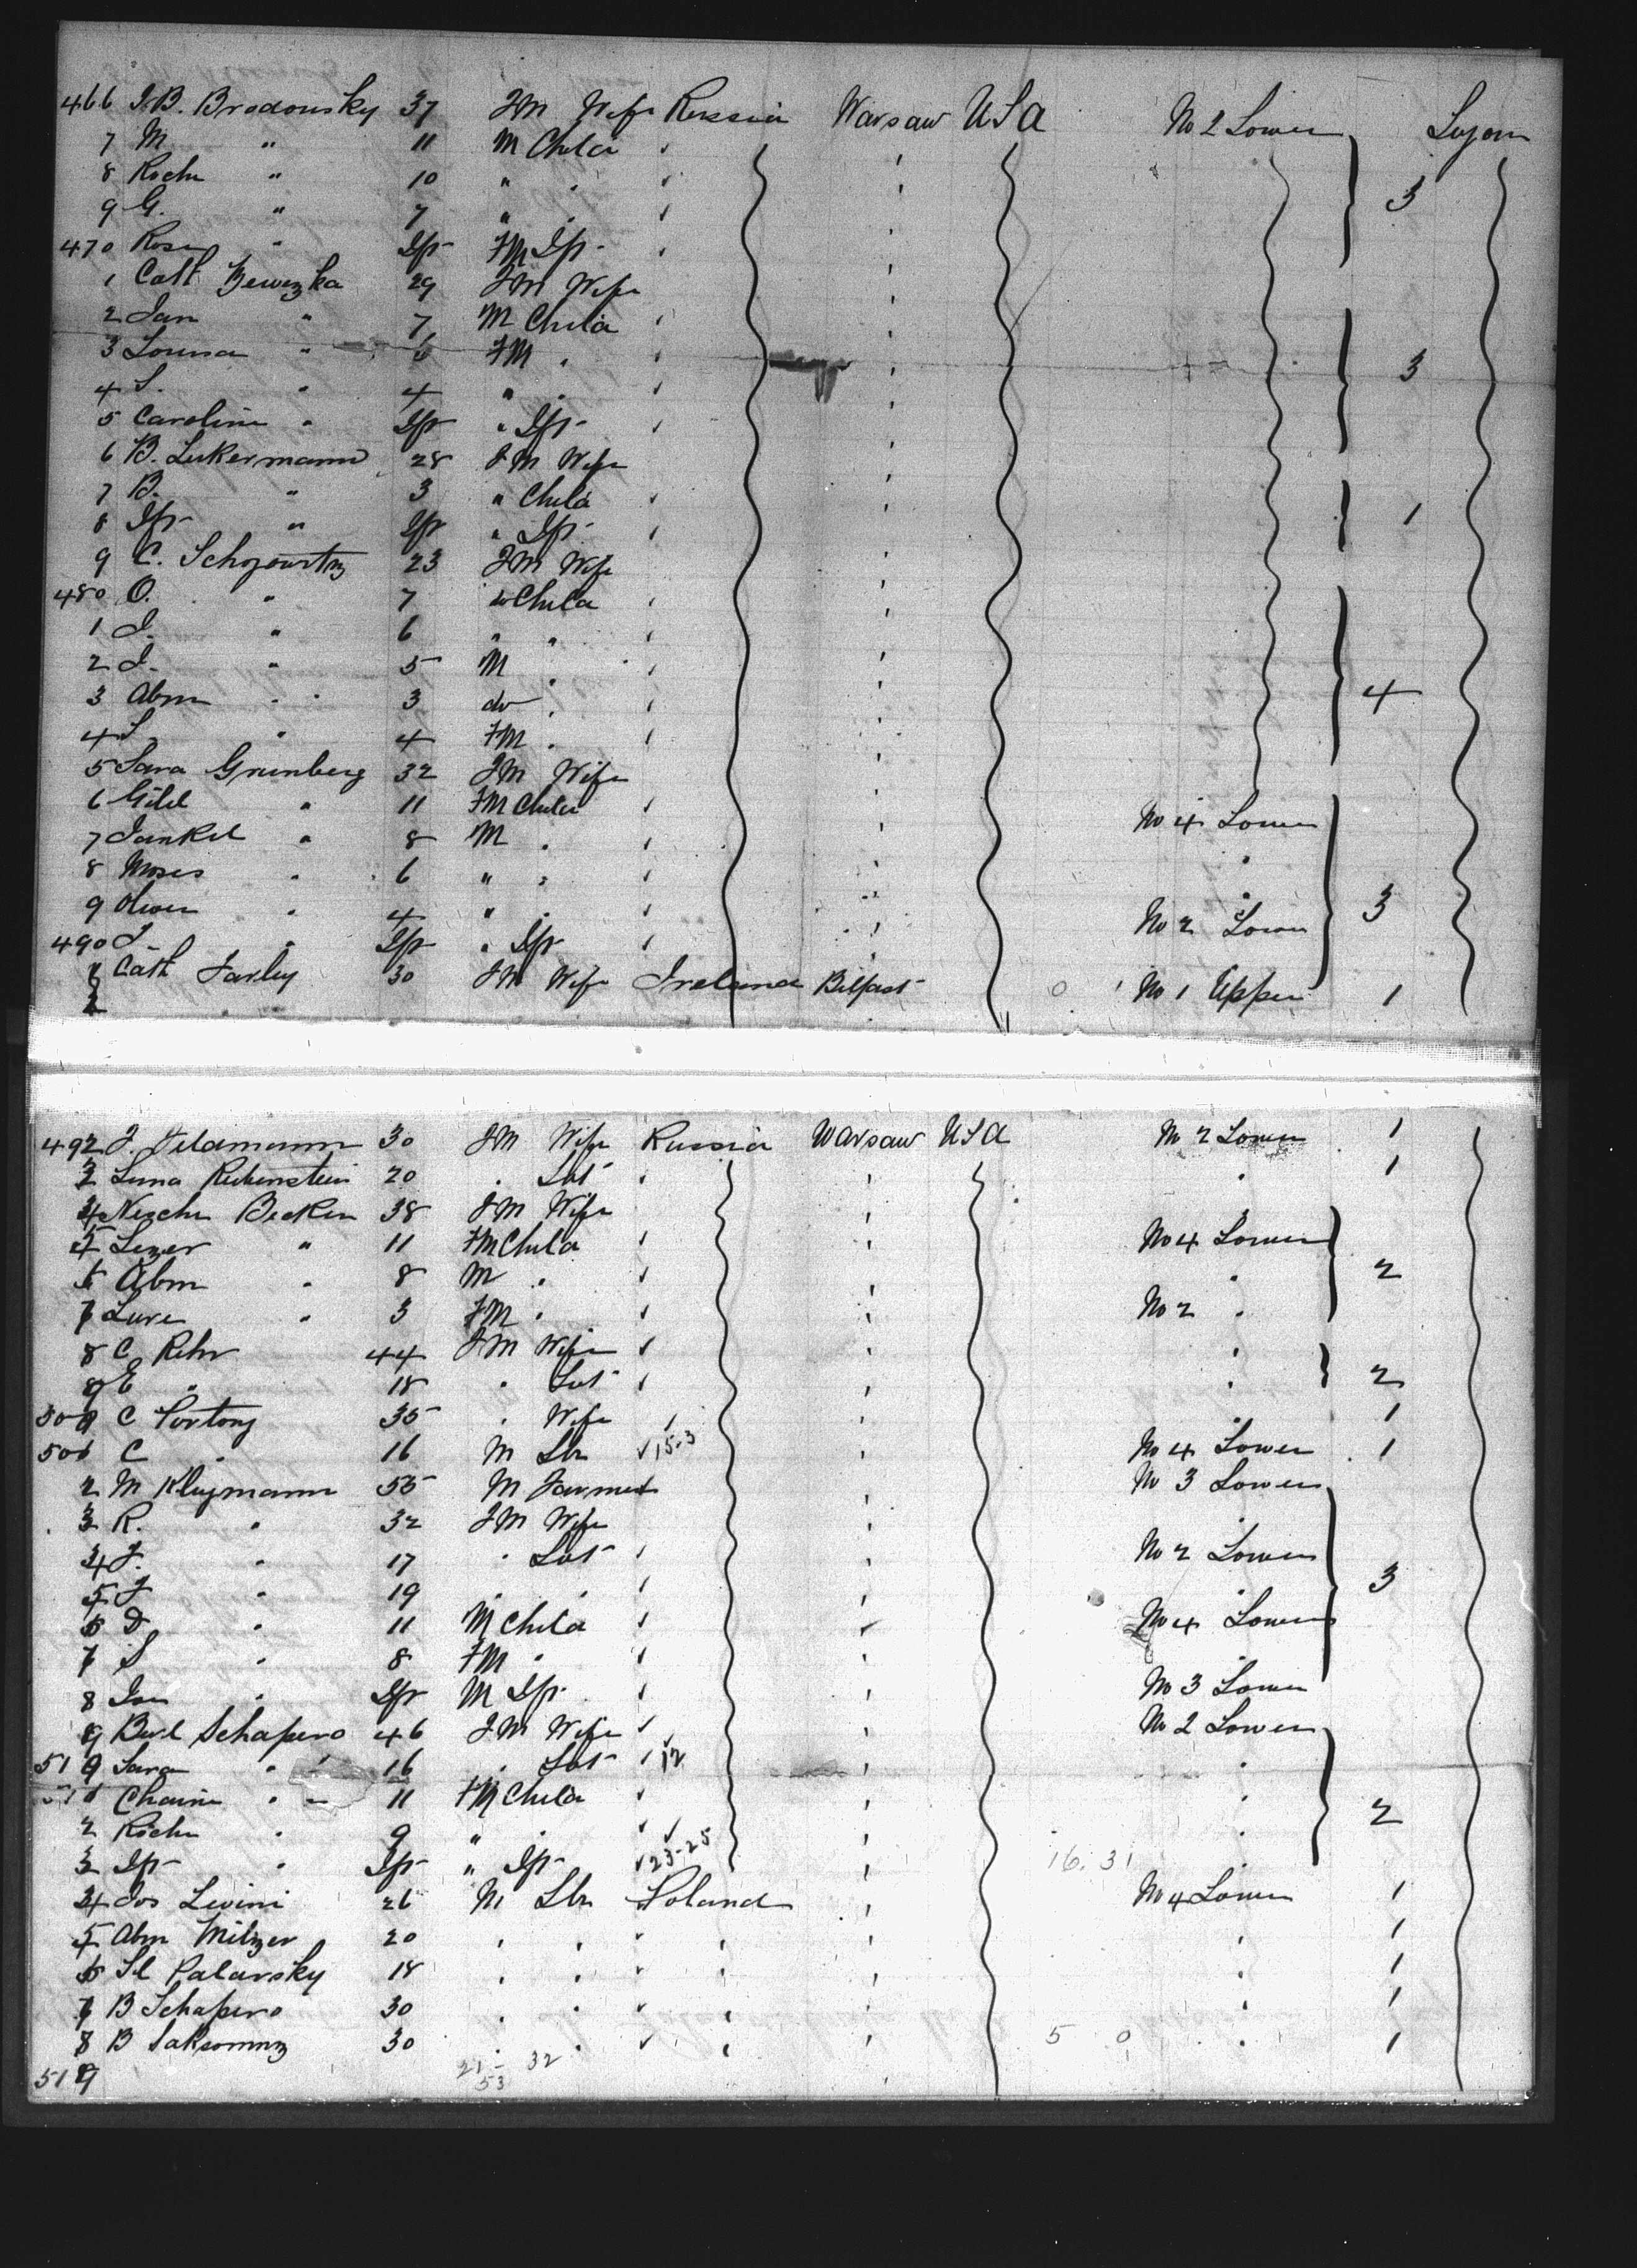 466 J.B. Brodowsky 37 FM Wife Russia Warsaw USA No 2 Lower
7 M " 11 M Child
8 Roche " 10 " "
9 G. " 7 " " 3
470 Rosa " Inft FM Inft
1 Cath 29 FM Wife
2 Jan " 7 M Child
3 Lousia " 6 FM " 3
4 S. " 4 " "
5 Caroline " Inft " Inft
6 B. Lukermann 28 FM Wife
7 B. " 3 " Child 1
8 Inft " Inft " Inft
9 C. 23 FM Wife
480 O. " 7 do Child
1 J. " 6 " "
2 J. " 5 M "
3 Abm " 3 do " 4
4 S. " 4 FM "
5 Sara Grunberg 32 FM Wife
6 Gitel " 11 FM Child No 4 Lower
7 Jankel " 8 M " "
8 Moses " 6 " " " 3
9 " 4 " " No 2 Lower
490 J " Inft " Inft
1 Cath Farley 30 FM Wife Ireland Belfast 0 No 1 Upper 1
2
492 J. Feldmann 30 FM Wife Russia Warsaw USA No 2 Lower 1
3 Rubenstein 20 " " 1
4 Becker 38 FM Wife
5 Lezer " 11 FM Child No 4 Lower
6 Abm " 8 M " " 2
7 " 3 FM " No 2 "
8 C Rehr 44 FM Wife "
9 E " 18 " " 2
500 C Portong 35 " Wife " 1
501 C " 16 M Lbr 15-3 No 4 Lower 1
2 M Klugmann 55 M Farmer No 3 Lower
3 R. " 32 FM Wife "
4 J. " 17 " No 2 Lower
5 J " 19 " " " 3
6 D " 11 M Child No 4 Lower
7 S " 8 FM " "
8 " Inft M Inft No 3 Lower
9 Schapero 46 FM Wife No 2 Lower
510 Sara " 16 " 12 "
511 " 11 FM Child "
2 Roche " 9 " " " 2
3 Inft " Inft " Inft 23-25 16. 31 "
4 Jos Levini 26 M Lbr Poland No 4 Lower 1
5 Abm Milzer 20 " " " 1
6 Palarsky 18 " " " 1
7 B Schapero 30 " " " 1
8 B 30 " " 5 0 " 1
519 21-32
53